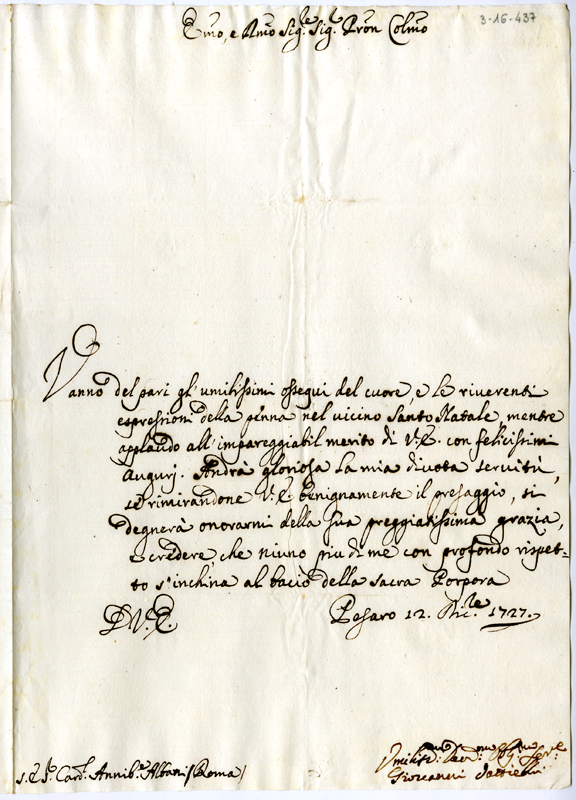 3-16-437
Emo, e Rmo Sig.re Sig.r Pron Colmo
Vanno del pari gl'umilissimi ossequi del cuore, e le riverenti
espressioni della penna nel vicino Santo Natale, mentre
applaudo all'impareggiabil merito di V.E. con felicissimi
Augurj. Andrà gloriosa la mia divota servitù,
se rimirandone V.E. benignamente il presaggio, si
degnerà onorarmi della sua preggiatissima grazia,
e credere, che niuno più di me con profondo rispet=
to s'inchina al bacio della sacra Porpora
D V.E.
Pesaro 12. Dic.re 1727.
S.r Card.l Annib.e Albani (Roma)
Umiliss.mo
Giovanni